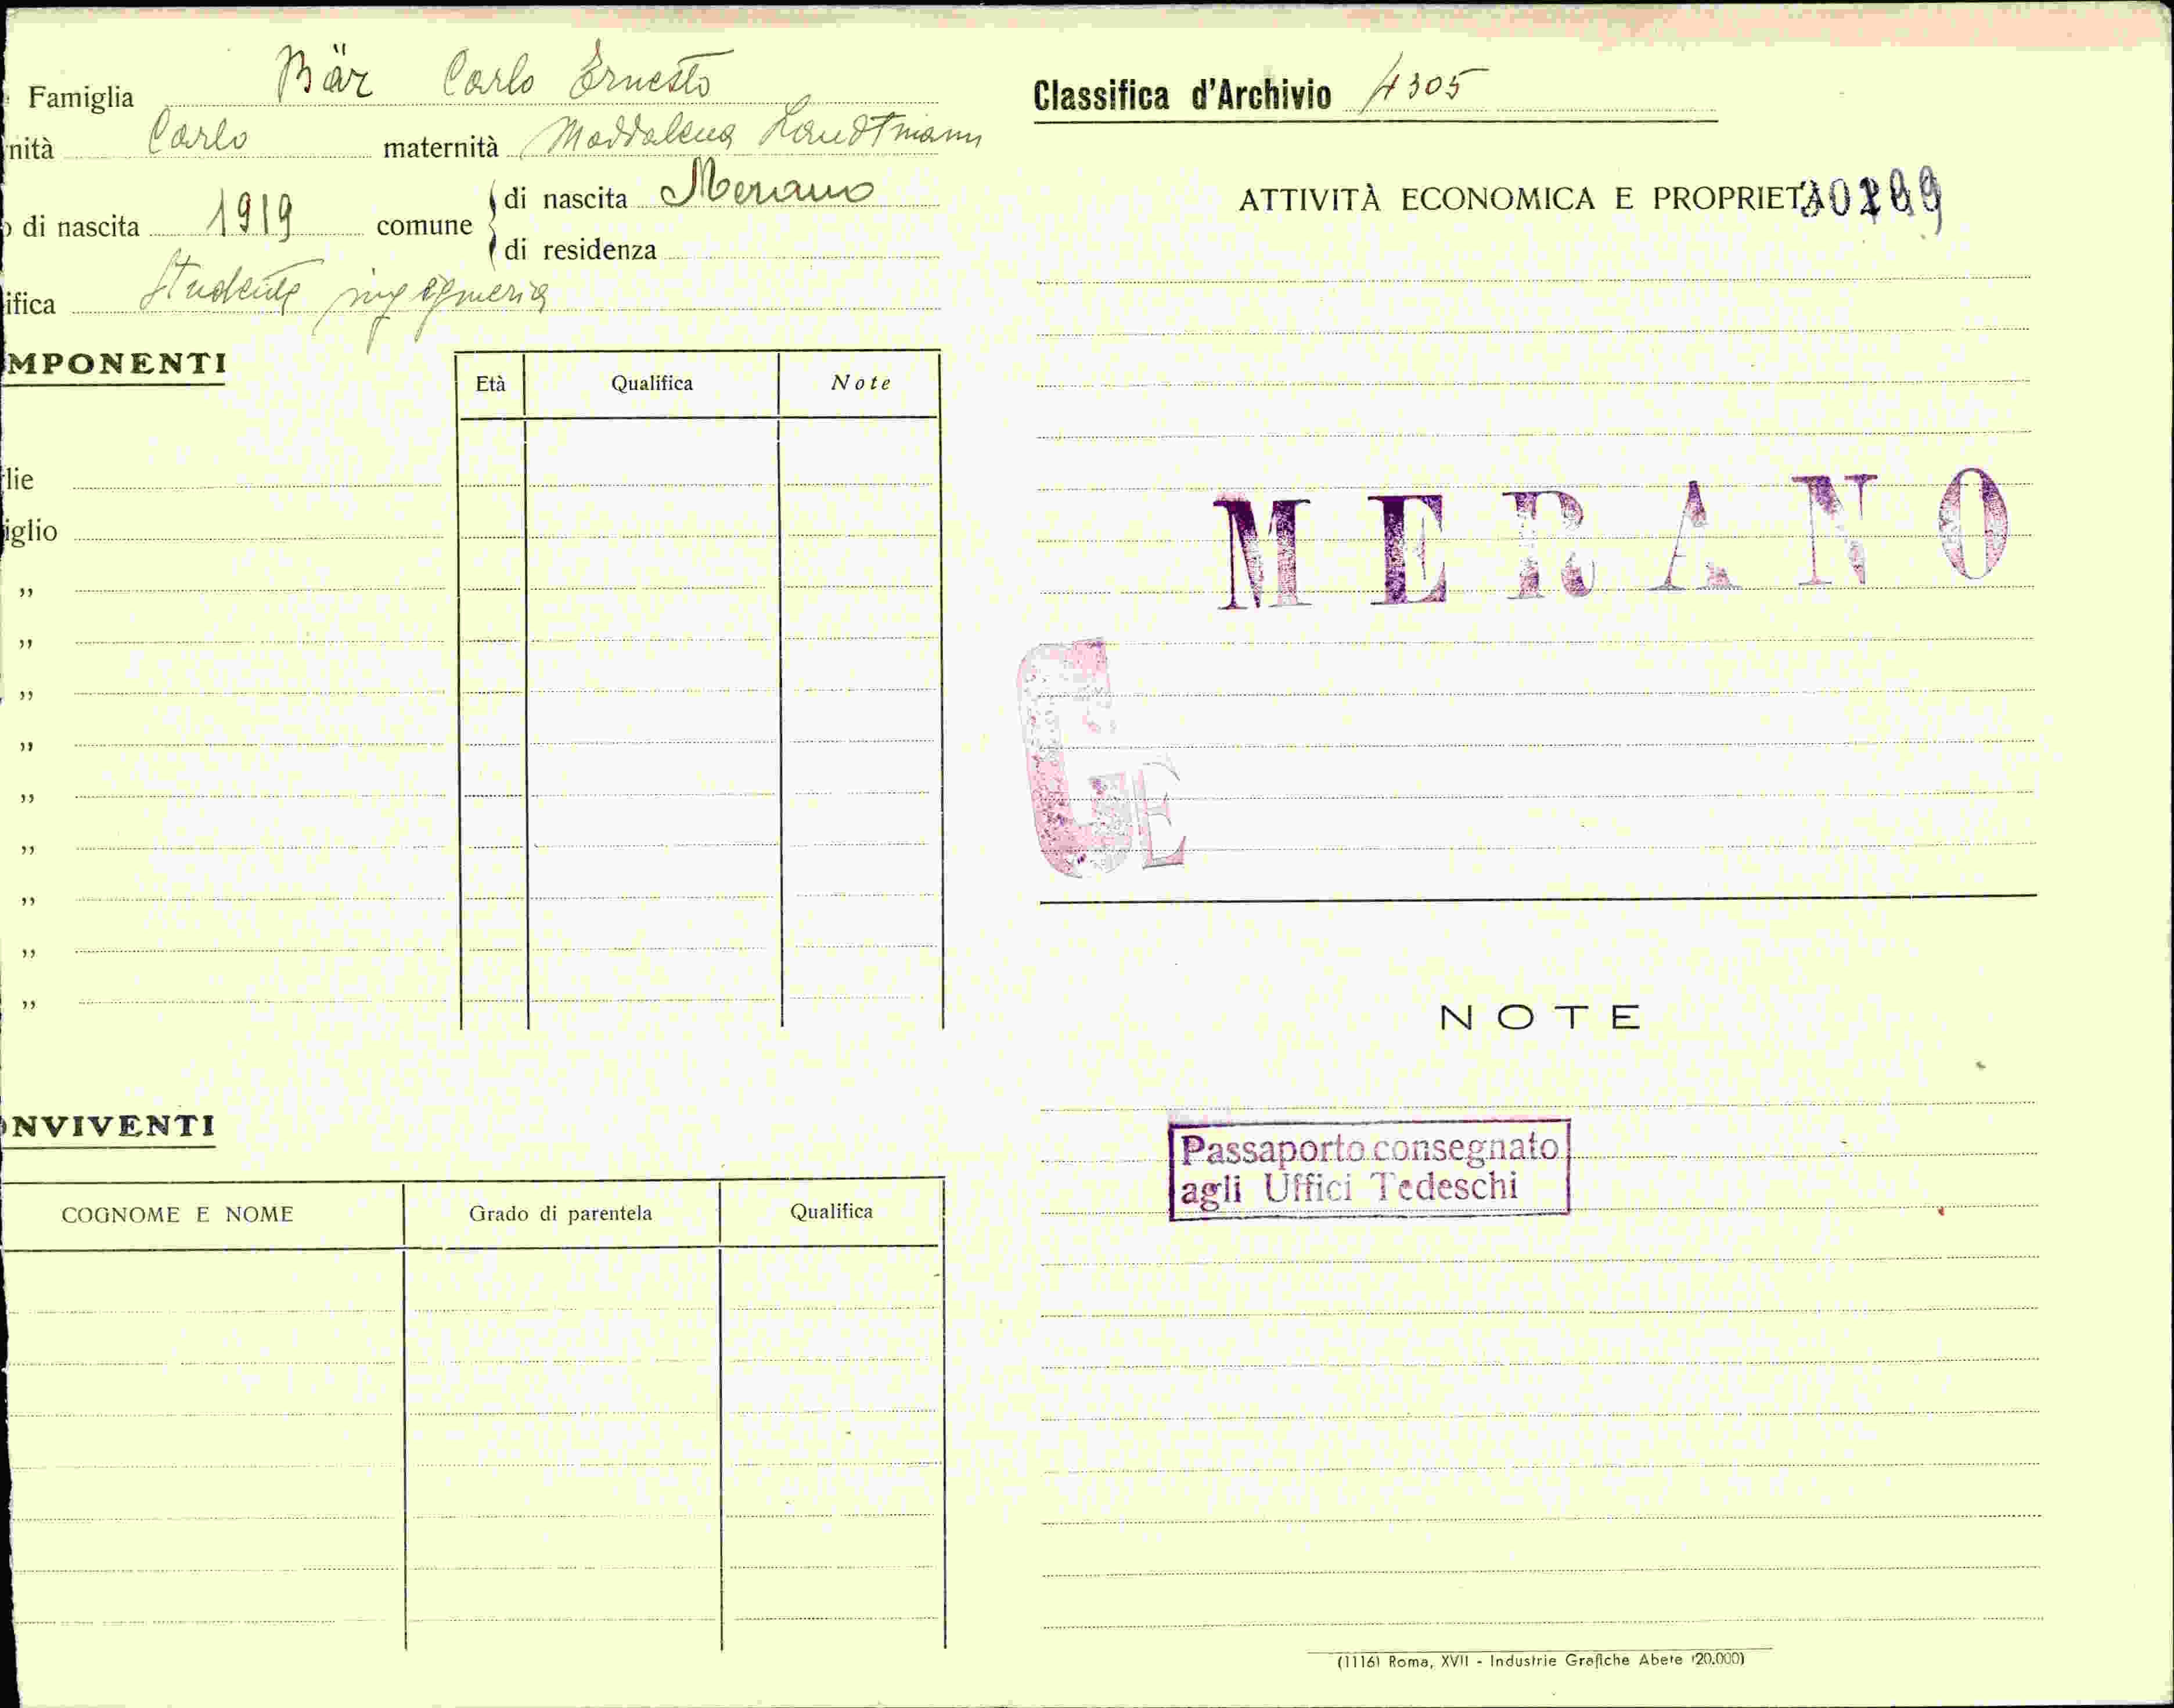 Famiglia Bär Carlo Ernesto
nità Carlo maternità Maddalena Landtmann
di nascita 1919 comune di nascita Merano
di residenza
ifica Studente ingegneria
MPONENTI
Età Qualifica Note
lie
iglio
"
"
"
"
"
"
"
"
"
NVIVENTI
COGNOME E NOME Grado di parentela Qualifica
Classifica d'Archivio 4305
ATTIVITÀ ECONOMICA E PROPRIETÀ
MERANO
E
NOTE
Passaporto consegnato
agli Uffici Tedeschi
(1116) Roma, XVII - Industrie Grafiche Abete (20.000)